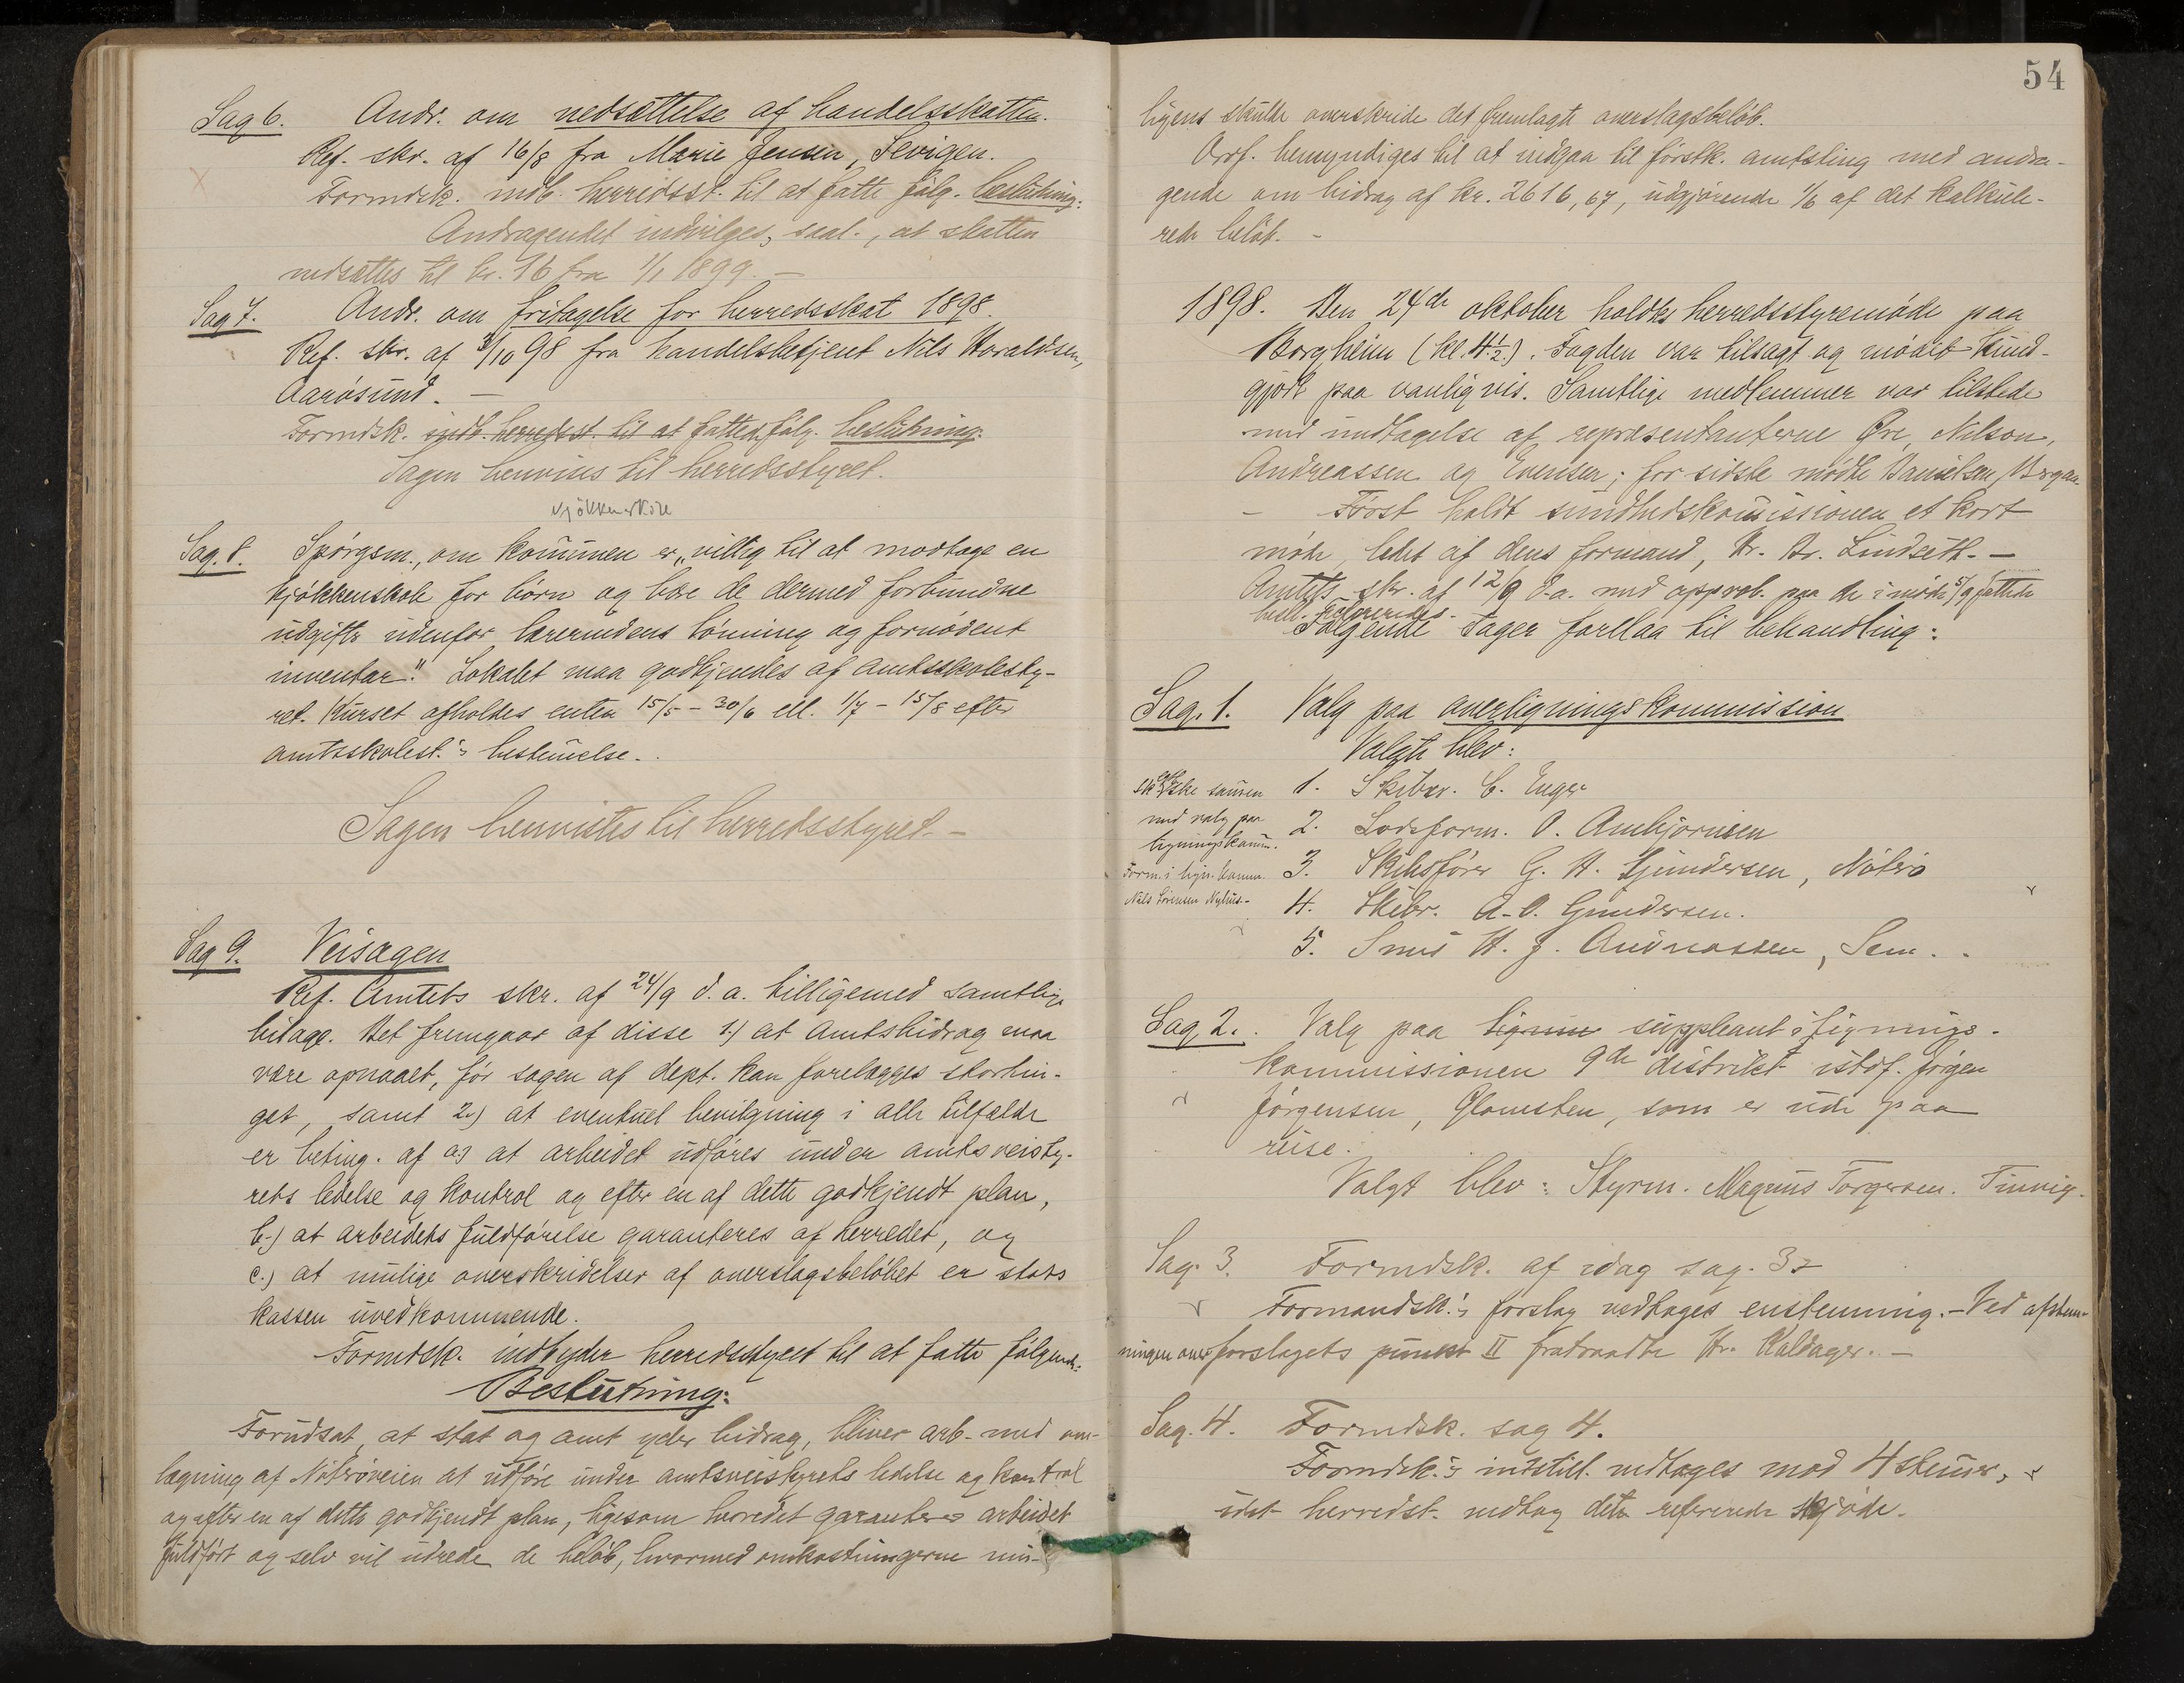 Sag 6. Andr. om nedsættelse af handelsskatten.
Ref. skr. af 16/8 fra Marie Jensen,
Formdsk. indb. herredsst. til at fatte følg. beslutning:
Andragendet indvilges, saal., at skatten
nedsættes til kr. 16 fra 1/1 1899. –
Sag 7. Andr. om fritagelse for herredsskat 1898.
Ref. skr. af 3/10 98 fra handelsbetjent Nils Haraldsen,
Aarøsund. –
Formdsk. indb. herredsst. til at fatte følg. beslutning:
Sagen henvises til herredsstyret.
Sag. 8. Spørgsm., om kommunen er „villig til at modtage en
kjøkkenskole for børn og bære de dermed forbundne
udgifte udenfor lærerindens lønning og fornødent
inventar". Lokalet maa godkjendes af amtsskolesty-
ret. Kurset afholdes enten 15/5 – 30/6 ell. 1/7 – 15/8 efter
amtsskolest.'s bestemelse.
Sagen henvistes til herredsstyret. –
Sag 9. Veisagen
Ref. Amtets skr. af 24/9 d.a. tilligemed samtlige
bilage. Det fremgaar af disse 1.) at amtsbidrag maa
være opnaaet, før sagen af dept. kan forelægges stortin-
get, samt 2.) at eventuel bevilgning i alle tilfælde
er beting. af a.) at arbeidet udføres under amtsveisty-
rets ledelse og kontrol og efter en af dette godkjendt plan,
b.) at arbeidets fuldførelse garanteres af herredet, og
c.) at mulige overskridelser af overslagsbeløbet er stats
kassen uvedkommende.
Formdsk. indbyder herredsstyret til at fatte følgende
Beslutning:
Forudsat, at stat og amt yder bidrag, bliver arb. med om-
lægning af Nøtterøveien at udføre under amtsveistyrets ledelse og kontrol
og efter en af dette godkjendt plan, ligesom herredet garanterer arbeidet
fuldført og selv vil udrede de beløb, hvormed omkostningerne mu-
54
ligens skulde overskride det fremlagte overslagsbeløb.
Ordf. bemyndiges til at indgaa til førstk. amtsting med andra-
gende om bidrag af kr. 2616,67, udgjørende 1/6 af det kalkule-
rede beløb. –
1898. Den 24de oktober holdtes herredsstyremøde paa
Borgheim (kl. 4½). Fogden var tilsagt og mødet kund-
gjort paa vanlig vis. Samtlige medlemmer var tilstede
med undtagelse af repræsentanterne Øre, Nilson,
Andreassen og Evensen; for sidste mødte Danielsen,
– Først holdt sundhedskomissionen et kort
møde, ledet af dens formand, Hr. Dr. Lindseth. –
Amtets skr. af 12/9 d.a. med approb. paa de i møde 5/9 fattede
Følgende sager forelaa til behandling:
Sag. 1. Valg paa overligningskommission
Valgte blev:
1. Skibsr. C. Enger
2. Lodsform. O. Ambjørnsen
3. Skibsfører G. H. Gundersen, Nøtterø
4. Skibr. A. O. Gundersen.
5. Smed H. J. Andreassen, Sem.
skal ske samen
med valg paa
ligningskomm.
Form. i lign. komm.
Nils Sørensen Nyhus. –
Sag 2. Valg paa suppleant i lignings-
kommissionen 9de distrikt istdf. Jørgen
Jørgensen, Glomsten, som er ude paa
reise.
Valgt blev: Styrm. Magnus Torgersen. Tinvig.
Sag. 3. Formdsk. af idag sag. 3
Formandsk.'s forslag vedtages enstemmig. – Ved afstem-
ningen over forslagets punkt II fratraadte Hr. Kaldager. –
Sag. 4. Formdsk. sag 4.
Formdsk.'s indstill. vedtages mod 4 stemmer,
idet herredst. vedtog det refererede skjøde.